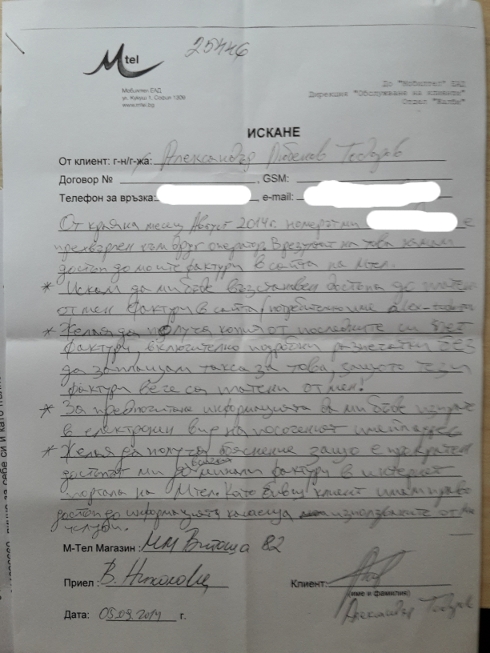 25446
Mtel
Мобилтел ЕАД
ул. Кукуш 1, София 1309
www.mtel.bg
До "Мобилтел" ЕАД
Дирекция "Обслужване на клиенти"
Отдел "Жалби"
ИСКАНЕ
От клиент: г-н/г-жа: Александър Любенов Тодоров
Договор № , GSM:
Телефон за връзка: , e-mail:
От края на месец Август 2014г. номерът ми е
прехвърлен към друг оператор. В резултат на това нямам
достъп до моите фактури в сайта на Мтел.
* Искам да ми бъде възстановен достъпа до платени
от мен фактури в сайта / потребителско име
* Желая да получа копия от последните си
фактури, включително подробни разпечатки БЕЗ
да заплащам такса за това, защото тези
фактури вече са платени от мен!
* За предпочитане информацията да ми бъде изпратена
в електронен вид на посоченият имейл адрес
* Желая да получа обяснение защо е прекратен
достъпът ми до всички минали фактури в интернет
портала на Мтел. Като бивш клиент имам право
достъп до информацията касаеща използваните от мен
услуги.
М-Тел Магазин: ММ Витоша 82
Приел: В. Клиент:
(име и фамилия)
Александър Тодоров
Дата: 09.2014 г.